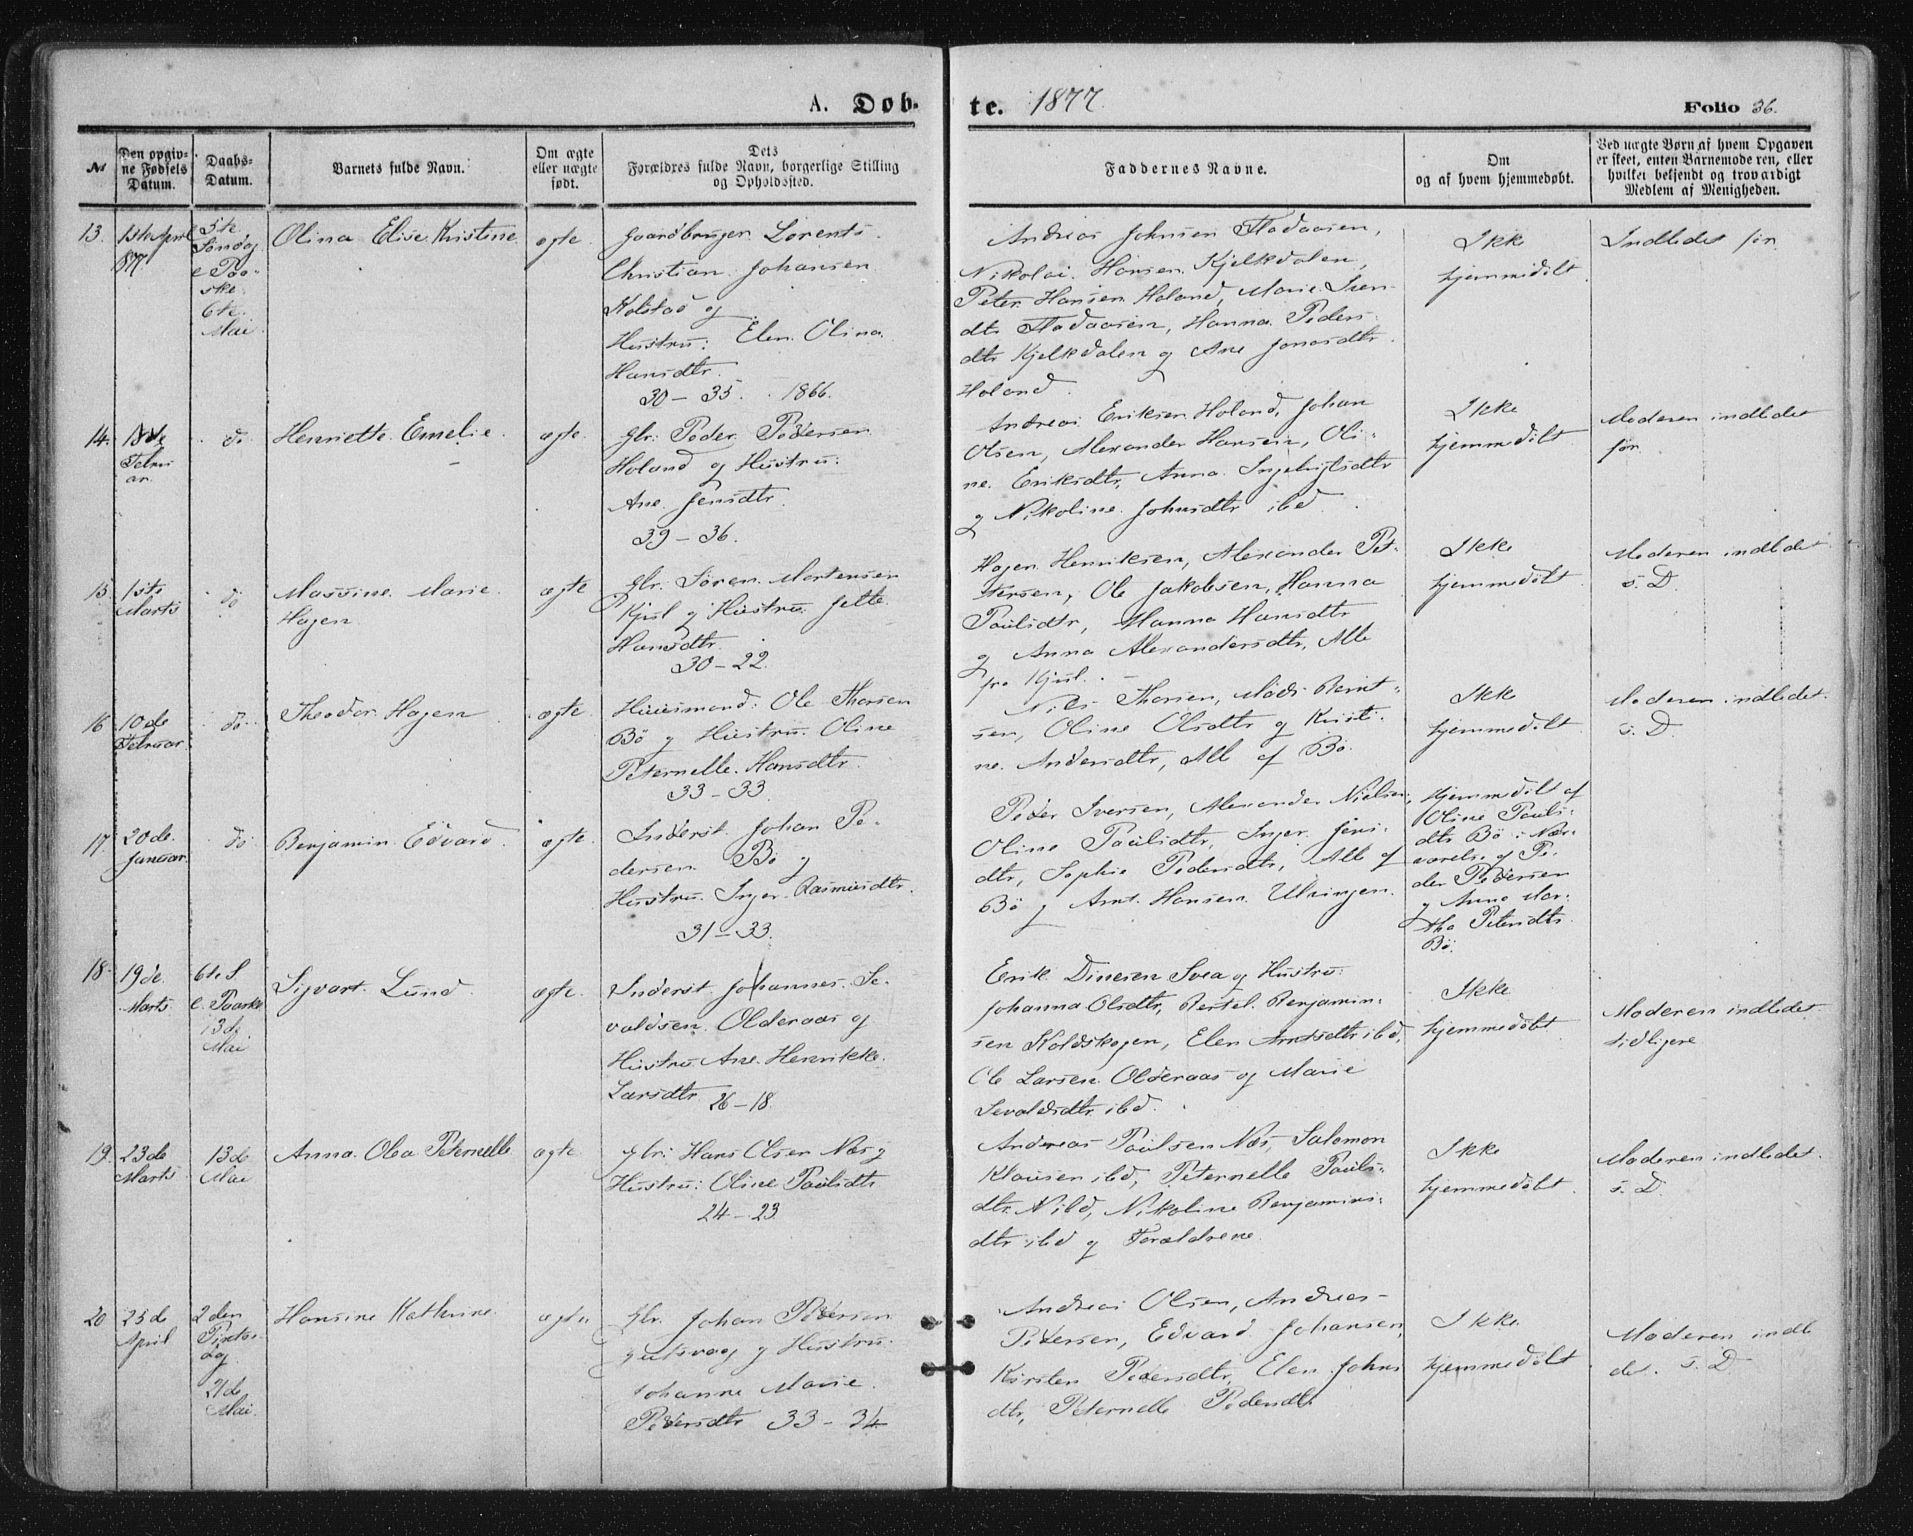 A. Døb-
te. 1877.
Folio 36.
№
Den opgiv-
ne Fødsels
Datum.
Daabs-
Datum.
Barnets fulde Navn.
Om ægte
eller uægte
født.
Dets
Forældres fulde Navn, borgerlige Stilling
og Opholdssted.
Faddernes Navne.
Om
og af hvem hjemmedøbt.
Ved uægte Børn af hvem Opgaven
er skeet, enten Barnemoderen, eller
hvilket bekjendt og troværdigt
Medlem af Menigheden.
13.
1ste April
877
5te
Søndag
e. Paa-
ske.
6te
Mai
Olina Elise Kristine
ægte.
Gaardbruger Lorents
Christian Johansen
Kolstad og
Hustru: Elen Olina
Hansdtr.
30 – 35. 1866.
Andreas Johnsen
Nikolai Hansen Kjelkdalen,
Peter Hansen Holand, Marie
dtr
dtr Kjelkdalen og Ane Jonasdtr.
Holand.
Ikke
hjemmedøbt
Indledet før
14.
Febru
ar.
do
Henriette Emelie.
ægte.
Gbr. Peder Pedersen
Holand og Hustru:
Ane Jensdtr.
39 – 36.
Andreas Eriksen Holand, Johan
Olsen, Alexander Hansen, Oli-
ne Eriksdtr, Anna Ingebrigtsdtr
og Nikoline Johnsdtr ibd.
Ikke
hjemmedøbt
Moderen indledet
før
15.
1ste
Marts
do
Massine Marie
Hagen
ægte
Gbr. Søren Mortensen
Kjul og Hustru Jette
Hansdtr.
30 – 22.
Hagen Henriksen, Alexander Pet-
tersen, Ole Jakobsen, Hanna
Paulsdtr, Hanna Hansdtr
og Anna Alexandersdtr, Alle
fra Kjul.
Ikke
hjemmedøbt
Moderen indledet
s. D.
16
10de
Februar.
do
Theodor Hagen
ægte.
Huusmand: Ole Thorsen
Bø og Hustru Oline
Peternelle Hansdtr.
33 – 33.
Nils Thorsen, Mads Bernt-
sen, Oline Olsdtr og Kristi-
ne Andersdtr, Alle af Bø.
Ikke
hjemmedøbt
Moderen indledet
s. D.
17
20de
Januar.
do
Benjamin Edvard.
ægte.
Inderst Johan Pe-
dersen Bø og
Hustru Inger Rasmusdtr.
31 – 33.
Peder Iversen, Alexander Nielsen,
Oline Paulsdtr, Inger Jens-
dtr, Sophie Pedersdtr, Alle af
Bø og Arnt Hansen Ulvingen.
Hjemmedøbt af
Oline Pauls-
dtr Bø i Nær-
værelse af Pe-
der Pedersen
og Anna Mar-
tha Petersdtr
Bø.
18.
19de
Marts
6te S
e. Paaske
13de
Mai
Sigvart Lund
ægte.
Inderst Johannes Se-
valdsen Olderaas og
Hustru Ane Henrikke
Larsdtr 26 – 18.
Erik Dinesen Svea og Hustru:
Johanna Olsdtr, Bertel Benjamin-
sen Koldskogen, Elen Arntsdtr ibd,
Ole Larsen Olderaas og Marie
Sevaldsdtr ibd.
Ikke
hjemmedøbt
Moderen indledet
tidligere
19.
23de
Marts
13de
Mai
Anna Olea Peternelle
ægte.
Gbr: Hans Olsen Næs og
Hustru: Oline Paulsdtr
24 – 23
Andreas Paulsen Næs, Salomon
Klausen ibd, Peternelle Pauls-
dtr ibd, Nikoline Benjamins-
dtr ibd og Forældrene.
Ikke
hjemmedøbt
Moderen indledet
s. D.
20
25de
April
2den
Pintse
Dag
21de
Mai.
Hansine Kathrine.
ægte
Gbr. Johan Pedersen
og Hustru:
Johanne Marie
Pedersdtr 33 – 34
Andreas Olsen, Andreas
Pedersen, Edvard Johansen,
Kirsten Pedersdtr, Elen Johns
dtr, Peternelle Pedersdtr
Ikke
hjemmedøbt
Moderen indle
det. s. D.